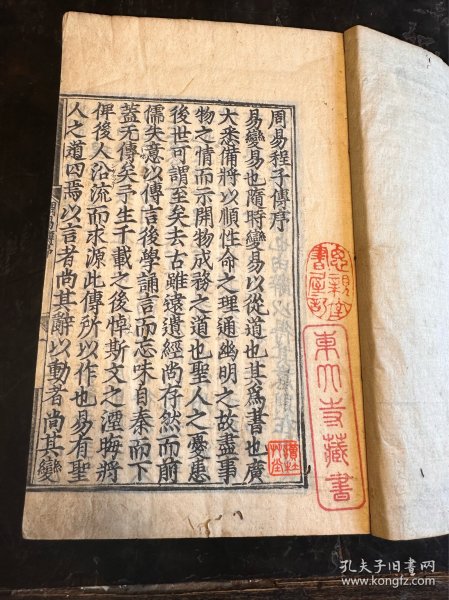 周易程子傳序
易變易也隨時變易以從道也其爲書也廣
大悉備將以順性命之理通幽明之故盡事
物之情而示開物成務之道也聖人之憂患
後世可謂至矣去古雖遠遺經尚存然而前
儒失意以傳言後學誦言而忘味自秦而下
蓋无傳矣予生千載之後悼斯文之湮晦將
俾後人沿流而求源此傳所以作也易有聖
人之道四焉以言者尚其辭以動者尚其變
東大寺藏書
孔夫子旧書网
www.kongfz.com